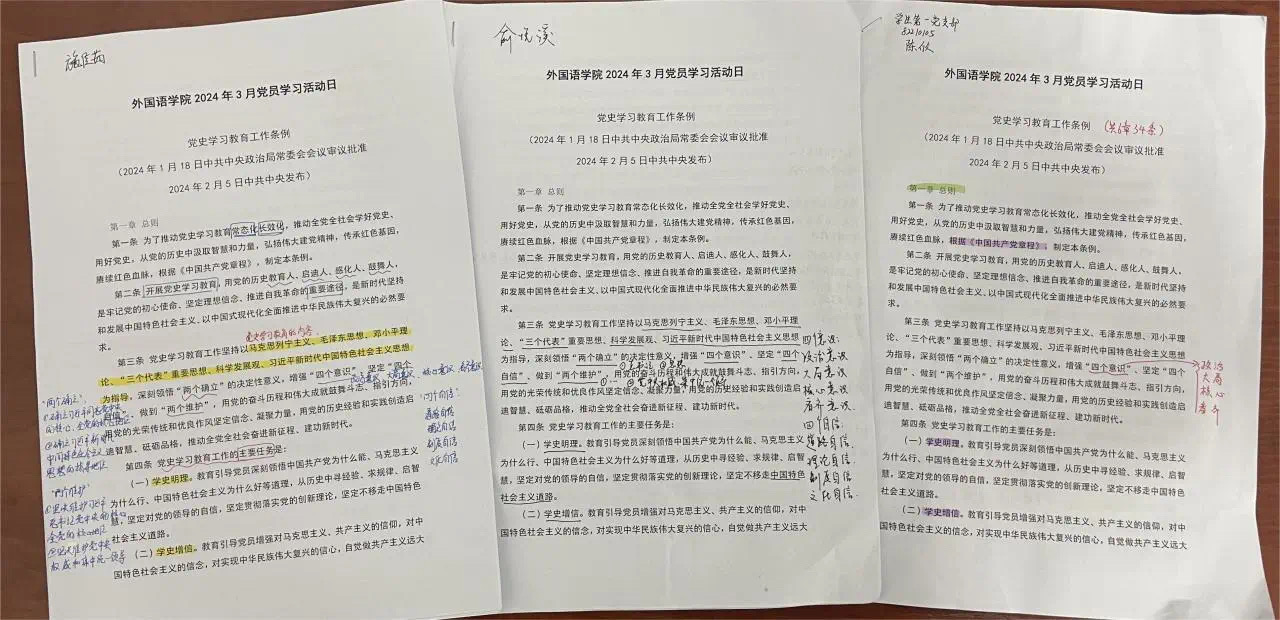 俞悦溪
学生第一党支部
82210105
外国语学院 2024 年 3 月党员学习活动日
党史学习教育工作条例
（2024 年 1 月 18 日中共中央政治局常委会会议审议批准
2024 年 2 月 5 日中共中央发布）
第一章 总则
第一条 为了推动党史学习教育常态化长效化，推动全党全社会学好党史、
用好党史，从党的历史中汲取智慧和力量，弘扬伟大建党精神，传承红色基因，
赓续红色血脉，根据《中国共产党章程》，制定本条例。
第二条 开展党史学习教育，用党的历史教育人、启迪人、感化人、鼓舞人，
是牢记党的初心使命、坚定理想信念、推进自我革命的重要途径，是新时代坚持
和发展中国特色社会主义、以中国式现代化全面推进中华民族伟大复兴的必然要
求。
党史学习教育的内容
第三条 党史学习教育工作坚持以马克思列宁主义、毛泽东思想、邓小平理
论、“三个代表”重要思想、科学发展观、习近平新时代中国特色社会主义思想
为指导，深刻领悟“两个确立”的决定性意义，增强“四个意识”、坚定“四个
自信”、做到“两个维护”，用党的奋斗历程和伟大成就鼓舞斗志、指引方向，
用党的光荣传统和优良作风坚定信念、凝聚力量，用党的历史经验和实践创造启
迪智慧、砥砺品格，推动全党全社会奋进新征程、建功新时代。
第四条 党史学习教育工作的主要任务是：
（一）学史明理。教育引导党员深刻领悟中国共产党为什么能、马克思主义
为什么行、中国特色社会主义为什么好等道理，从历史中寻经验、求规律、启智
慧，坚定对党的领导的自信，坚定贯彻落实党的创新理论，坚定不移走中国特色
社会主义道路。
（二）学史增信。教育引导党员增强对马克思主义、共产主义的信仰，对中
国特色社会主义的信念，对实现中华民族伟大复兴的信心，自觉做共产主义远大
“两个确立”：
“两个维护”
“四个自信”：
道路自信
理论自信
制度自信
文化自信
外国语学院 2024 年 3 月党员学习活动日
党史学习教育工作条例
（2024 年 1 月 18 日中共中央政治局常委会会议审议批准
2024 年 2 月 5 日中共中央发布）
第一章 总则
第一条 为了推动党史学习教育常态化长效化，推动全党全社会学好党史、
用好党史，从党的历史中汲取智慧和力量，弘扬伟大建党精神，传承红色基因，
赓续红色血脉，根据《中国共产党章程》，制定本条例。
第二条 开展党史学习教育，用党的历史教育人、启迪人、感化人、鼓舞人，
是牢记党的初心使命、坚定理想信念、推进自我革命的重要途径，是新时代坚持
和发展中国特色社会主义、以中国式现代化全面推进中华民族伟大复兴的必然要
求。
第三条 党史学习教育工作坚持以马克思列宁主义、毛泽东思想、邓小平理
论、“三个代表”重要思想、科学发展观、习近平新时代中国特色社会主义思想
为指导，深刻领悟“两个确立”的决定性意义，增强“四个意识”、坚定“四个
自信”、做到“两个维护”，用党的奋斗历程和伟大成就鼓舞斗志、指引方向，
用党的光荣传统和优良作风坚定信念、凝聚力量，用党的历史经验和实践创造启
迪智慧、砥砺品格，推动全党全社会奋进新征程、建功新时代。
第四条 党史学习教育工作的主要任务是：
（一）学史明理。教育引导党员深刻领悟中国共产党为什么能、马克思主义
为什么行、中国特色社会主义为什么好等道理，从历史中寻经验、求规律、启智
慧，坚定对党的领导的自信，坚定贯彻落实党的创新理论，坚定不移走中国特色
社会主义道路。
（二）学史增信。教育引导党员增强对马克思主义、共产主义的信仰，对中
国特色社会主义的信念，对实现中华民族伟大复兴的信心，自觉做共产主义远大
政治意识
大局意识
核心意识
看齐意识
四自信：
道路自信
理论自信
制度自信
文化自信
外国语学院 2024 年 3 月党员学习活动日
党史学习教育工作条例 （共6章34条）
（2024 年 1 月 18 日中共中央政治局常委会会议审议批准
2024 年 2 月 5 日中共中央发布）
第一章 总则
第一条 为了推动党史学习教育常态化长效化，推动全党全社会学好党史、
用好党史，从党的历史中汲取智慧和力量，弘扬伟大建党精神，传承红色基因，
赓续红色血脉，根据《中国共产党章程》，制定本条例。
第二条 开展党史学习教育，用党的历史教育人、启迪人、感化人、鼓舞人，
是牢记党的初心使命、坚定理想信念、推进自我革命的重要途径，是新时代坚持
和发展中国特色社会主义、以中国式现代化全面推进中华民族伟大复兴的必然要
求。
第三条 党史学习教育工作坚持以马克思列宁主义、毛泽东思想、邓小平理
论、“三个代表”重要思想、科学发展观、习近平新时代中国特色社会主义思想
为指导，深刻领悟“两个确立”的决定性意义，增强“四个意识”、坚定“四个
自信”、做到“两个维护”，用党的奋斗历程和伟大成就鼓舞斗志、指引方向，
用党的光荣传统和优良作风坚定信念、凝聚力量，用党的历史经验和实践创造启
迪智慧、砥砺品格，推动全党全社会奋进新征程、建功新时代。
第四条 党史学习教育工作的主要任务是：
（一）学史明理。教育引导党员深刻领悟中国共产党为什么能、马克思主义
为什么行、中国特色社会主义为什么好等道理，从历史中寻经验、求规律、启智
慧，坚定对党的领导的自信，坚定贯彻落实党的创新理论，坚定不移走中国特色
社会主义道路。
（二）学史增信。教育引导党员增强对马克思主义、共产主义的信仰，对中
国特色社会主义的信念，对实现中华民族伟大复兴的信心，自觉做共产主义远大
政治
大局
核心
看齐